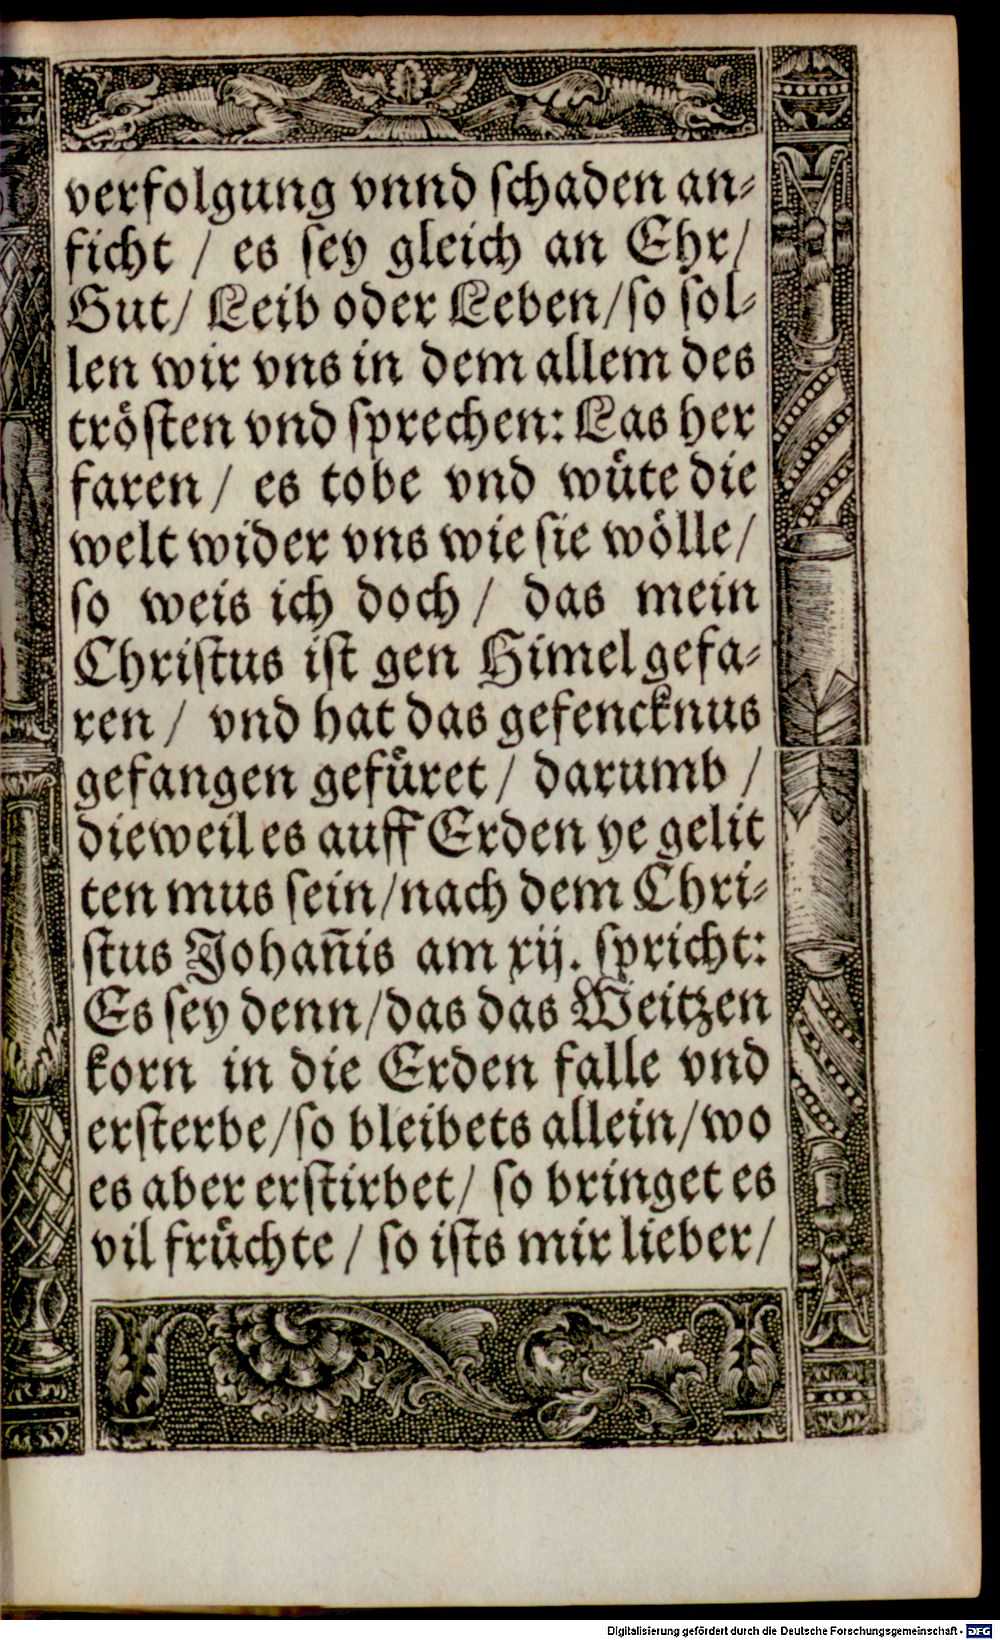 verfolgung vnnd schaden an⸗
ficht / es sey gleich an Ehr/
Gut/ Leib oder Leben/so sol⸗
len wir vns in dem allem des
trösten vnd sprechen: Las her
faren / es tobe vnd wüte die
welt wider vns wie sie wölle/
so weis ich doch / das mein
Christus ist gen Himel gefa⸗
ren / vnd hat das gefencknus
gefangen gefüret / darumb /
dieweil es auff Erden ye gelit
ten mus sein/nach dem Chri⸗
stus Johan̄is am xij. spricht:
Es sey denn/das das Weitzen
korn in die Erden falle vnd
ersterbe/so bleibets allein/wo
es aber erstirbet/ so bringet es
vil früchte / so ists mir lieber/
Digitalisierung gefördert durch die Deutsche Forschungsgemeinschaft - DFG